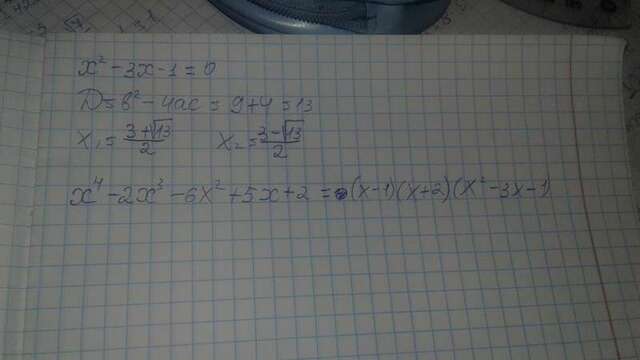 x² - 3x - 1 = 0
D = b² - 4ac = 9 + 4 = 13
x₁ = (3 + √13)/2 x₂ = (3 - √13)/2
x⁴ - 2x³ - 6x² + 5x + 2 = (x-1)(x+2)(x² - 3x - 1)